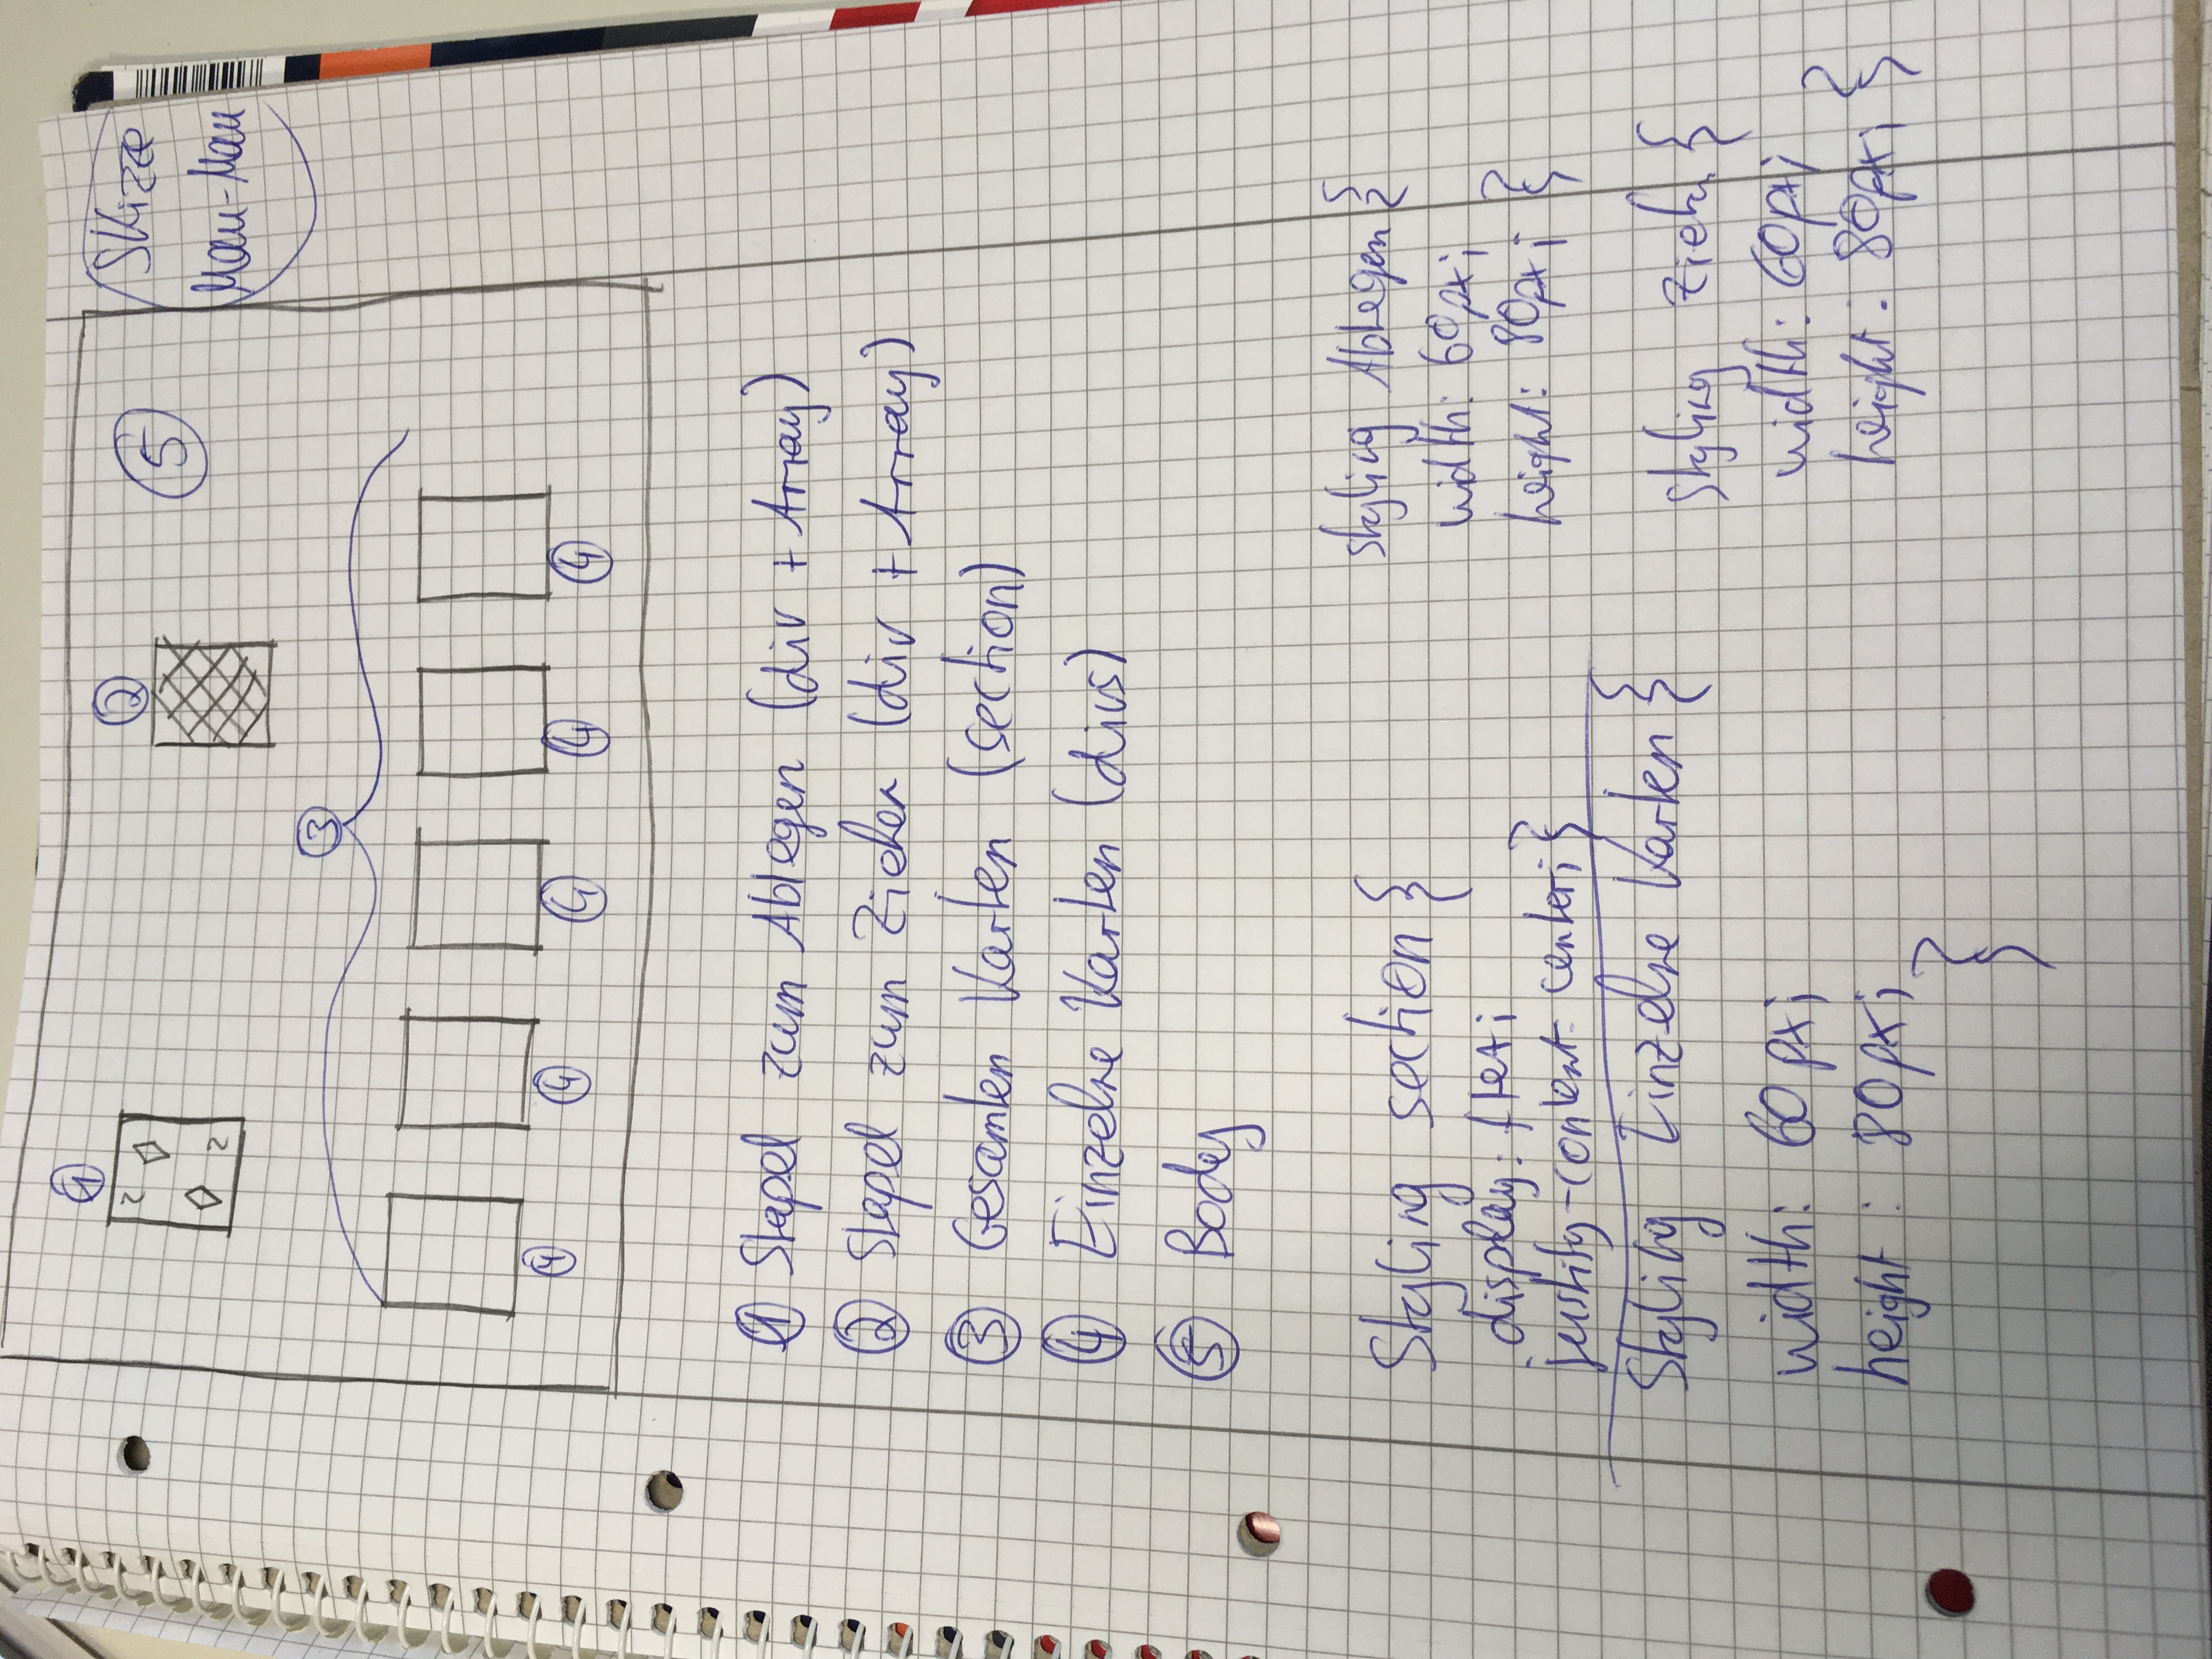 Skizze
Mau-Mau
1
2
2
2
5
3
4
4
4
4
4
1 Stapel zum Ablegen (div + Array)
2 Stapel zum Ziehen (div + Array)
3 Gesamten Karten (section)
4 Einzelne Karten (divs)
5 Body
Styling section {
display: flex;
justify-content: center; }
Styling Einzelne Karten {
width: 60px;
height: 80px;
}
styling Ablegen {
width: 60px;
height: 80px; }
styling Ziehen {
width: 60px;
height: 80px; }